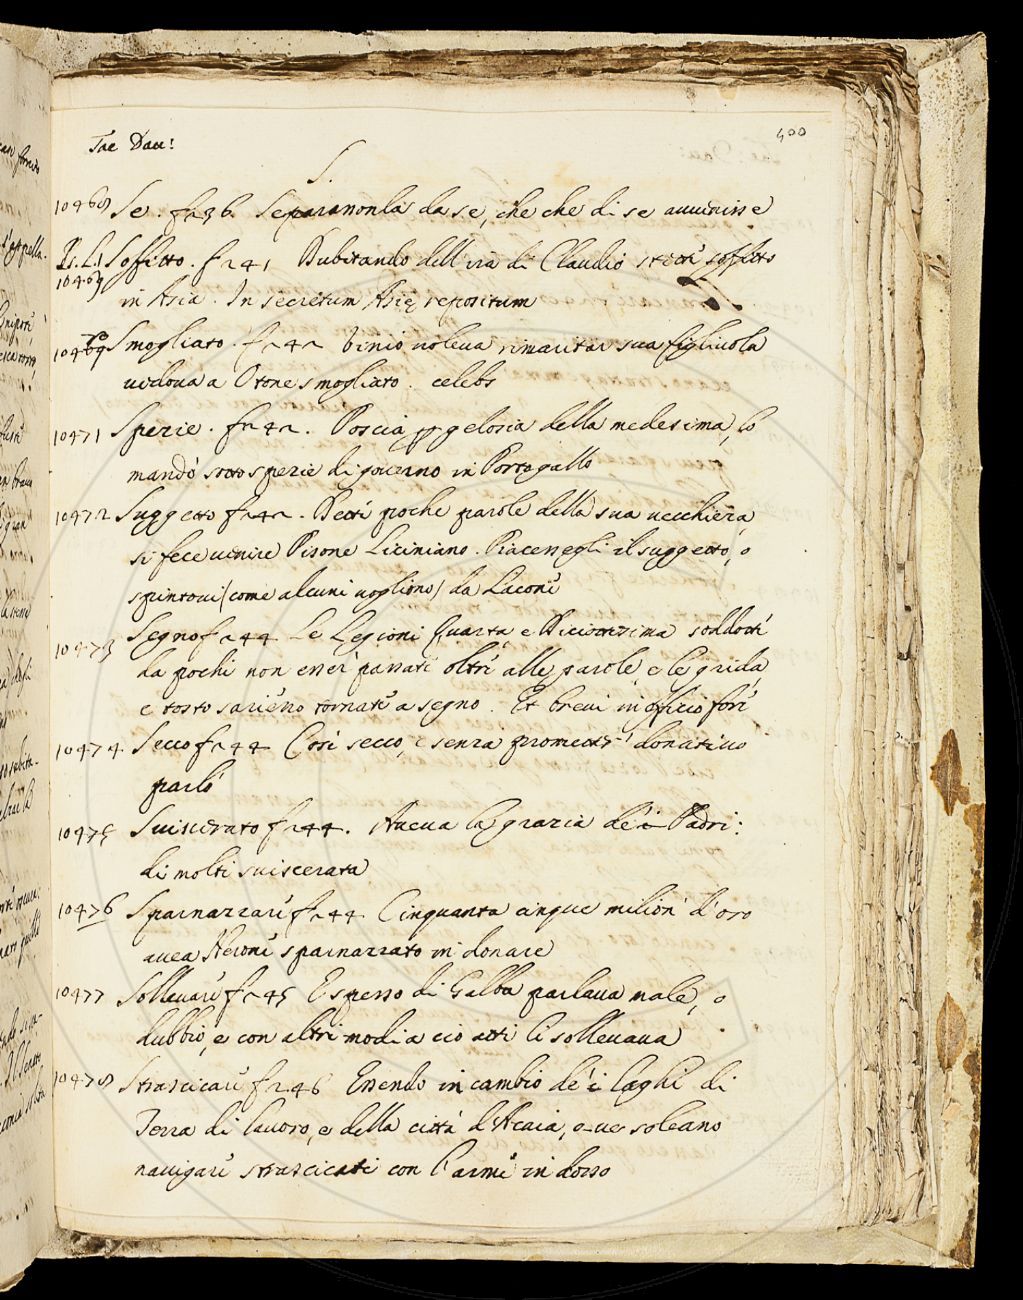 Tac Dau:
400
S.
10468 Se. fr 36. Separanonla da se, che che di se auuenisse
Ps. L1 Soffitto. fr 41 Dubitando dell'ira di Claudio stette soffitto
10469 in Asia. In secretum Asię repositum
10469 Smogliato. fr 42 Vinio uoleua rimaritar sua figliuola
uedoua a Otone smogliato. celebs
10471 Spezie. fr 42. Poscia per gelosia della medesima, lo
mandò sotto spezie di gouerno in Portogallo
10472 Suggetto fr 42. Dette poche parole della sua uecchiezza,
si fece uenire Pisone Liciniano. Piacendegli il suggetto, o
spintoui (come alcuni uogliono) da Lacone
10473 Segno fr 44 Le Legioni Quarta, e Diciottesima soddotte
da pochi non esser passati oltre alle parole, e le grida,
e tosto sarieno tornate a segno. Et breui in officio fore
10474 Secco fr 44 Così secco, e senza promettere donatiuo
parlò
10475 Suiscerato fr 44. Aueua la grazia de' i Padri:
di molti suiscerata
10476 Sparnazzare fr 44 Cinquanta cinque milion' d'oro
auea Nerone sparnazzato in donare
10477 Solleuare fr 45 E spesso di Galba parlaua male, o
dubbio, e con altri modi a ciò atti li solleuaua
10478 Strascicare fr 46 Essendo in cambio de' i laghi di
Terra di lauoro, e della città d'Acaia, oue soleano
nauigare strascicati con l'arme in dosso